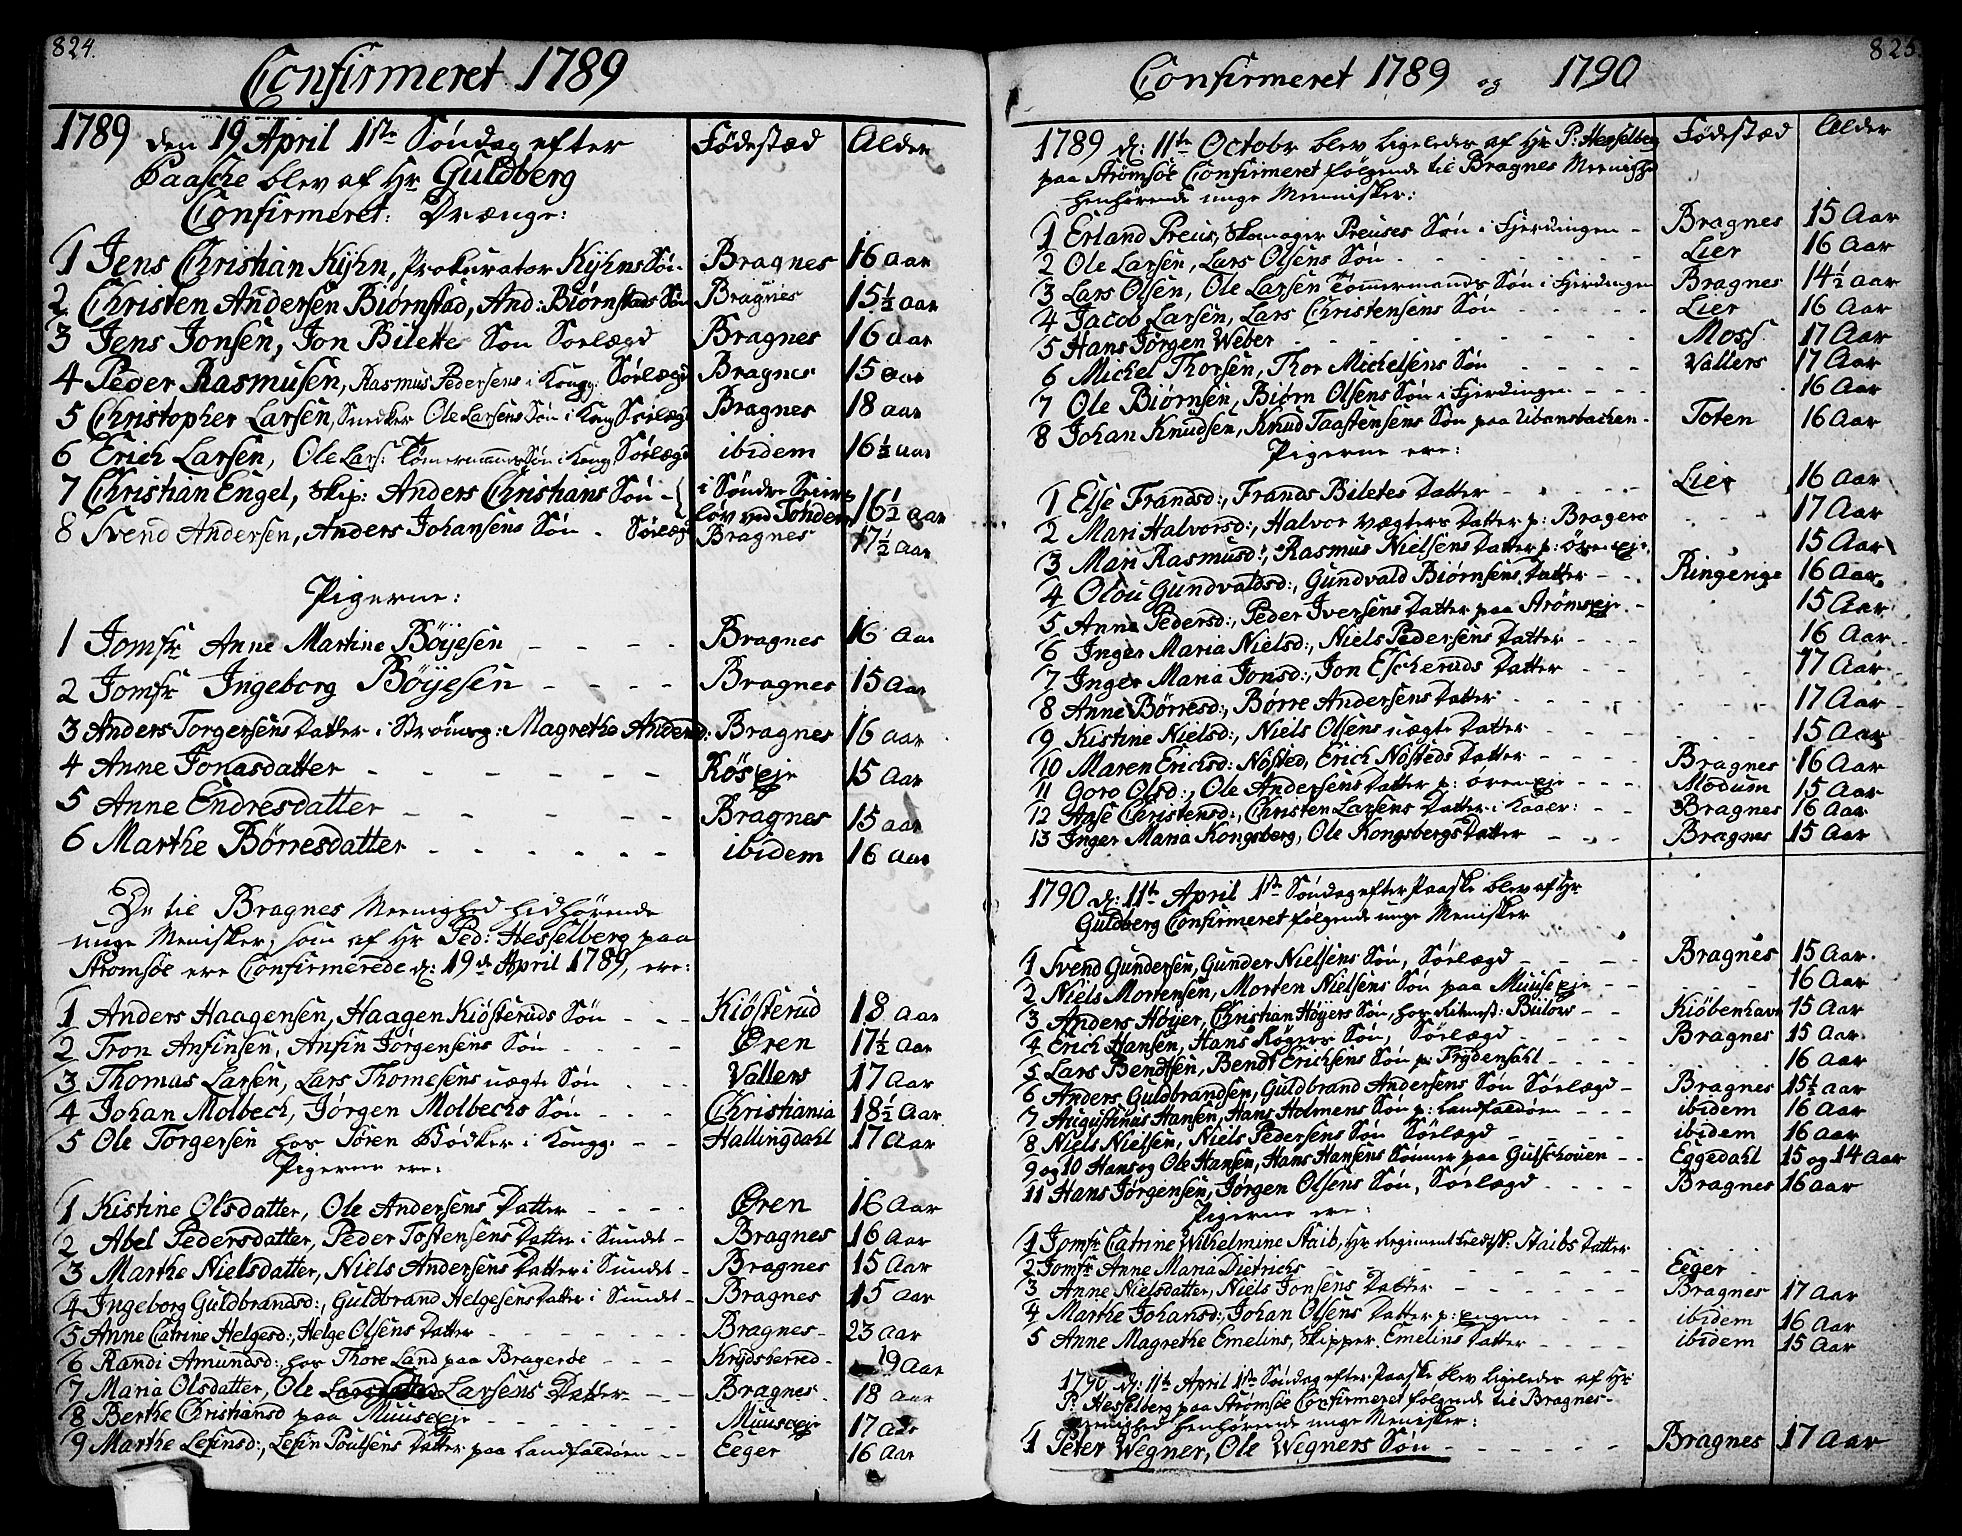 824.
Confirmeret 1789
1789 den 19 April 1ste Søndag efter Fødestæd Alder
Paasche blev af Hr Guldberg
Confirmeret: Drænge:
1 Jens Christian Kyhn, Prokurator Kyhns Søn Bragnes 16 Aar
2 Christen Andersen Biørnstad, And: Biørnstads Søn Bragnes 15½ Aar
3 Jens Jonsen, Jon Bilette Søn Sørlægd Bragnes 16 Aar
4 Peder Rasmusen, Rasmus Pedersens i Kongg: Sørlægd Bragnes 15 Aar
5 Christopher Larsen, Snedker Ole Larsens Søn i Kong Sørlægd Bragnes 18 Aar
6 Erich Larsen, Ole Lars: Tømermanns Søn i Kongg: Sørlægd ibidem 16½ Aar
7 Christian Engel, Skip: Anders Christians Søn - i Søndre Seier-
løv ved Tønder 16½ Aar
8 Svend Andersen, Anders Johansens Søn - Sørlægd Bragnes 17½ Aar
Pigerne:
1 Jomfr Anne Martine Böyesen Bragnes 16 Aar
2 Jomfr Ingeborg Böyesen Bragnes 15 Aar
3 Anders Torgersens Datter i Strömsg: Magrethe Andersd: Bragnes 16 Aar
4 Anne Jonasdatter Røs eje 15 Aar
5 Anne Endresdatter Bragnes 15 Aar
6 Marthe Börresdatter ibidem 16 Aar
De til Bragnes Meenighed hidhørende
unge Menisker, som af Hr Ped: Hesselberg paa
Strømsøe ere Confirmerede d: 19de April 1789, ere:
1 Anders Haagensen, Haagen Kiösteruds Søn Kiösterud 18 Aar
2 Tron Anfinsen, Anfin Jörgensens Søn Øren 17½ Aar
3 Thomas Larsen, Lars Thomesens uægte Søn Vallers 17 Aar
4 Johan Molbech, Jörgen Molbechs Søn Christiania 18½ Aar
5 Ole Torgersen hos Sören Bödker i Kongg: Hallingdahl 17 Aar
Pigerne ere:
1 Kistine Olsdatter, Ole Andersens Datter Øren 16 Aar
2 Abel Pedersdatter, Peder Tostensens Datter i Sundet Bragnes 16 Aar
3 Marthe Nielsdatter, Niels Andersens Datter i Sundet Bragnes 15 Aar
4 Ingeborg Guldbrandsd:, Guldbrand Helgesens Datter i Sundet Bragnes 15 Aar
5 Anne Catrine Helgesd:, Helge Olsens Datter Bragnes 23 Aar
6 Randi Amundsd: hos Thore Land paa Bragerøe Krydsherred 19 Aar
7 Maria Olsdatter, Ole Larsens Datter Bragnes 18 Aar
8 Berthe Christiansd paa Muuseeje Muuseeje 17 Aar
9 Marthe Lefinsd:, Lefin Poulsens Datter paa Landfaldøen Eeger 16 Aar
825
Confirmeret 1789 og 1790
1789 d: 11te Octobr blev ligeledes af Hr P: Hesselberg Fødestæd Alder
paa Strømsøe Confirmeret følgende til Bragnes Meenighed
henhørende unge Mennisker:
1 Erland Preus, Skomager Preuses Søn i Fjerdingen Bragnes 15 Aar
2 Ole Larsen, Lars Olsens Søn Lier 16 Aar
3 Lars Olsen, Ole Larsen Tömmermands Søn i Fjerdingen Bragnes 14½ Aar
4 Jacob Larsen, Lars Christensens Søn Lier 16 Aar
5 Hans Jörgen Weber Moss 17 Aar
6 Michel Thorsen, Thor Michelsens Søn Vallers 17 Aar
7 Ole Biørnsen, Biørn Olsens Søn i Fjerdingen 16 Aar
8 Johan Knudsen, Knud Taastensens Søn paa Ubansbachen Toten 16 Aar
Pigerne ere:
1 Else Frandsd:, Frands Biletes Datter Lier 16 Aar
2 Mari Halvorsd:, Halvor Vægters Datter p: Bragerø 17 Aar
3 Mari Rasmusd:, Rasmus Nielsens Datter p: øren eje 15 Aar
4 Olou Gundvaldsd:, Gundvald Biørnsens Datter Ringerige 16 Aar
5 Anne Pedersd:, Peder Iversens Datter paa Strømseje 15 Aar
6 Inger Maria Nielsd:, Niels Pedersens Datter 16 Aar
7 Inger Maria Jonsd:, Jon Escheruds Datter 17 Aar
8 Anne Börresd:, Börre Andersens Datter 17 Aar
9 Kistine Nielsd:, Niels Olsens uægte Datter 15 Aar
10 Maren Erichsd: Nösted, Erich Nösteds Datter Bragnes 16 Aar
11 Goro Olsd:, Ole Andersens Datter p: øren eje Modum 15 Aar
12 Anse Christensd:, Christen Larsens Datter i Kaaer: Bragnes 16 Aar
13 Inger Maria Kongsberg, Ole Kongsbergs Datter Bragnes 15 Aar
1790 d: 11te April 1ste Søndag efter Paaske blev af Hr
Guldberg Confirmeret følgende unge Menisker
1 Svend Gundersen, Gunder Nielsens Søn, Sørlægd Bragnes 15 Aar
2 Niels Mortensen, Morten Nielsens Søn paa Muuseeje 16 Aar
3 Anders Höyer, Christian Höyers Søn, hos Ritmst: Bülow Kiöbenhavn 15 Aar
4 Erich Hansen, Hans Rögers Søn, Sørlægd Bragnes 15 Aar
5 Lars Bendtsen, Bendt Erichsens Søn p: Frydendahl 16 Aar
6 Anders Guldbrandsen, Guldbrand Andersens Søn Sørlægd Bragnes 15½ Aar
7 Augustinus Hansen, Hans Holmens Søn p: Landfaldøen ibidem 16 Aar
8 Niels Nielsen, Niels Pedersens Søn Sørlægd ibidem 16 Aar
9 og 10 Hans og Ole Hansen, Hans Hansens Sønner paa Gulschouen Eggedahl 15 og 14 Aar
11 Hans Jørgensen, Jørgen Olsens Søn, Sørlægd Bragnes 16 Aar
Pigerne ere:
1 Jomfr Catrine Wilhelmine Staib, Hr Regiment Feldsk: Staibs Datter
2 Jomfr Anne Maria Dietrichs Eeger
3 Anne Nielsdatter, Niels Jonsens Datter Bragnes 17 Aar
4 Marthe Johansd: Johan Olsens Datter p: Engene ibidem 16 Aar
5 Anne Magrethe Emelins, Skipper Emelins Datter ibidem 15 Aar
1790 d: 11te April 1ste Søndag efter Paaske blev ligeledes af Hr
P: Hesselberg paa Strømsøe Confirmeret følgende til Bragnes-
Menighed henhørende unge Menisker:
1 Peter Wegner, Ole Wegners Søn Bragnes 17 Aar